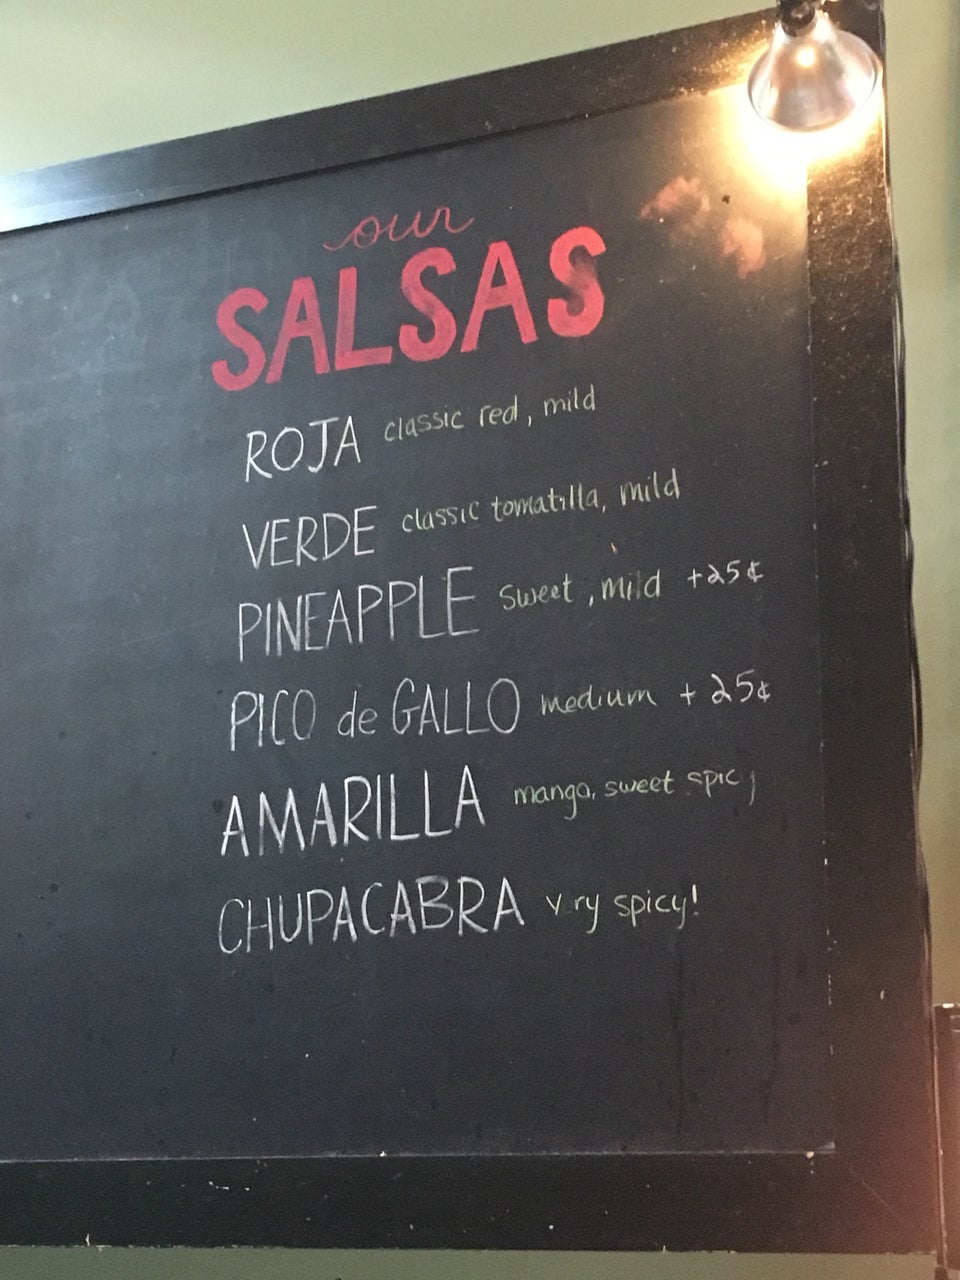 our
SALSAS
ROJA classic red, mild
VERDE classic tomatilla, mild
PINEAPPLE sweet, mild +25¢
PICO de GALLO medium + 25¢
AMARILLA mango, sweet spicy
CHUPACABRA v ry spicy!